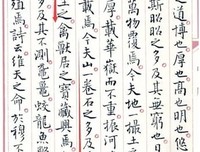 之道博也厚也高也明也悠
斯昭昭之多及其無窮也日
萬物覆焉今夫地一撮土之
厚載華嶽而不重振河
載焉今夫山一卷石之多及
之禽獸居之寶藏興焉
多及其不測黿鼉蛟龍魚鱉
殖焉詩云維天之命於穆不